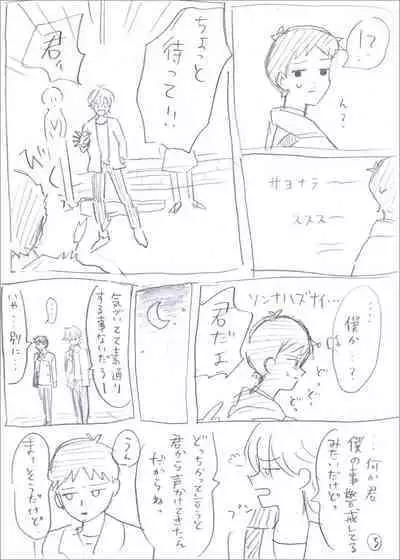 !?
ん?
サヨナラ
ススス
ちょっと
待って!!
君ぃ
…僕が…?
ソンナハズナイ…
どっ
どっ
どっ
君だよ
気がいてて素通り
する事ないだろー
…
いや…別に…
…何か君
僕の事警戒してる
みたいだけどっ
どっちかって言うと
君から声かけてきたん
だからねっ
うん
まぁ、そうだけど
5